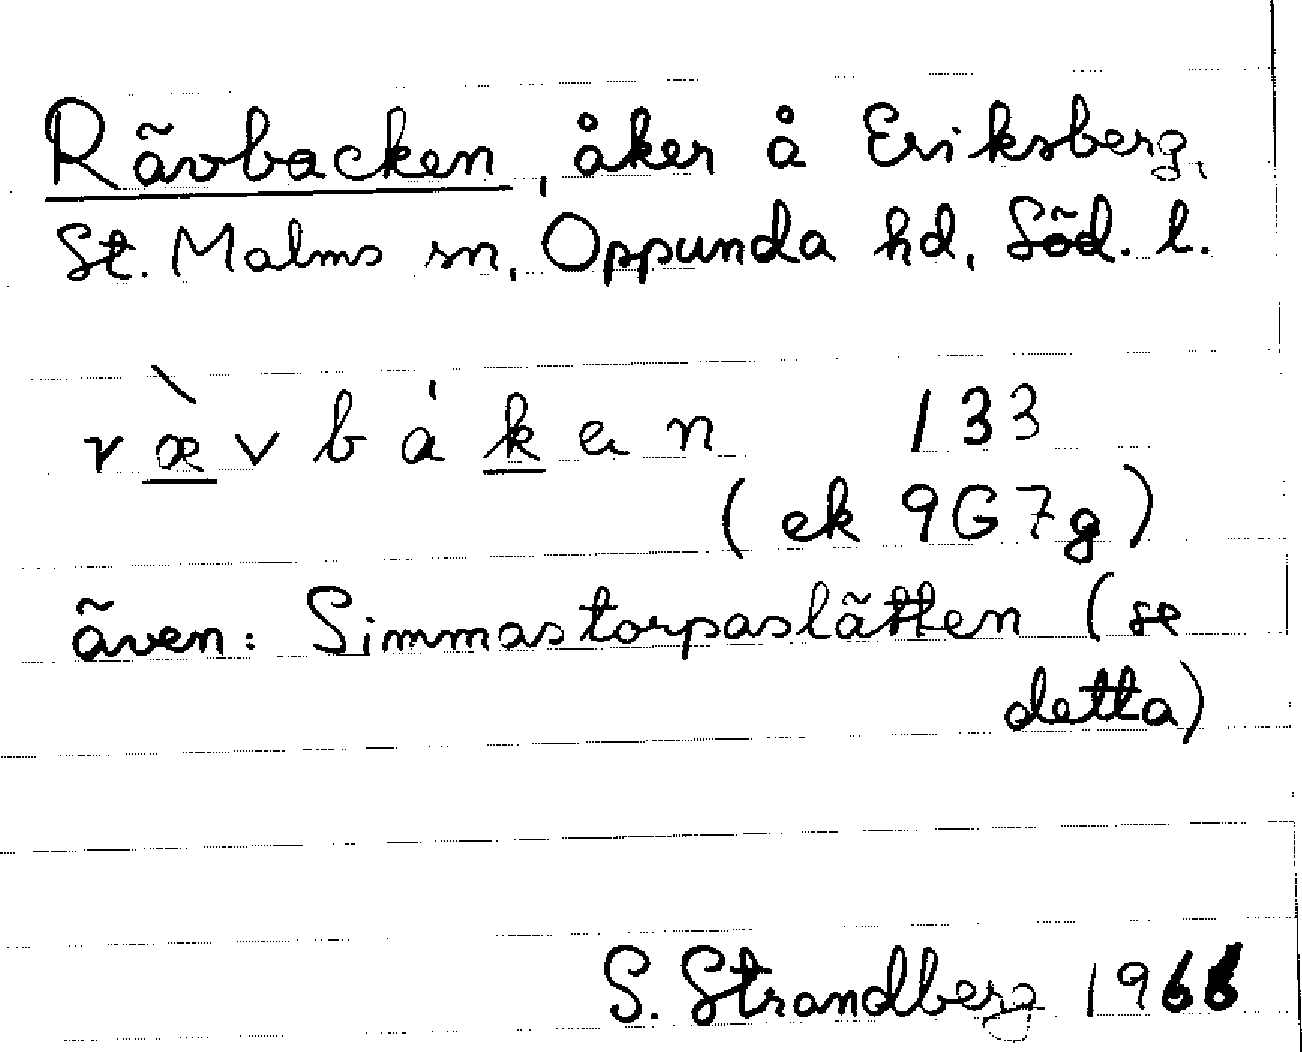 Rävbacken, åker å Eriksberg,
St. Malms sn, Oppunda hd, Söd. l.
ræ̀vbákən 133
(ek 9G7g)
även: Simmastorpaslätten (se
detta)
S. Strandberg 1966